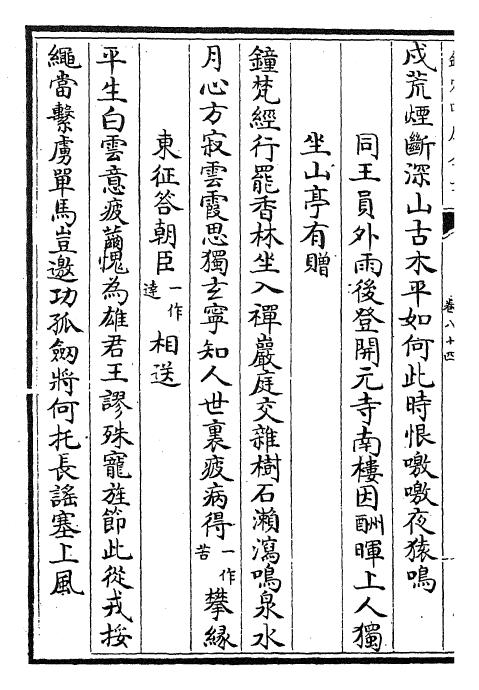 戍荒煙斷深山古木平如何此時恨噭噭夜猿鳴
同王員外雨後登開元寺南樓因酬暉上人獨
坐山亭有贈
鐘梵經行罷香林坐入禪巖庭交雜樹石瀨瀉鳴泉水
月心方寂雲霞思獨玄寧知人世裏疲病得一作苦攀緣
東征答朝臣一作達相送
平生白雲意疲繭愧為雄君王謬殊寵旌節此從戎挼
繩當繫虜單馬豈邀功孤劔將何托長謠塞上風
卷八十四